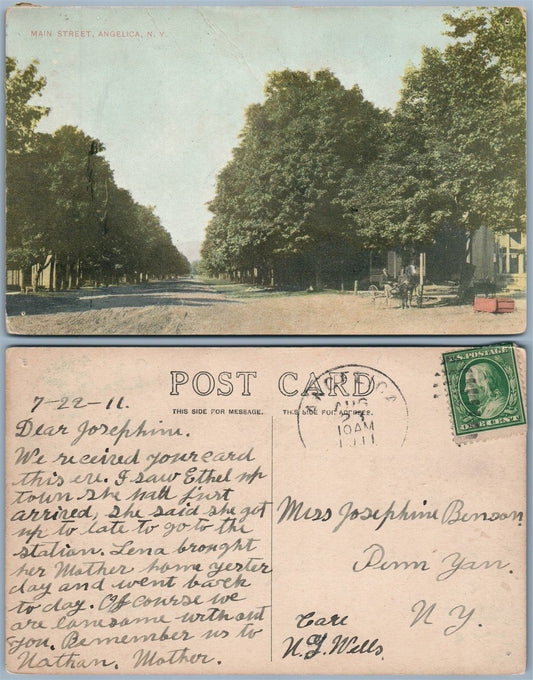 MAIN STREET, ANGELICA, N. Y.
POST CARD
THIS SIDE FOR MESSAGE. THIS SIDE FOR ADDRESS.
7-22-11.
Dear Josephine.
We received your card
this eve. I saw Ethel up
town she had just
arrived, she said she got
up to late to go to the
station. Lena brought
her Mother home yester
day and went back
to day. Of course we
are lonesome without
you. Remember us to
Nathan. Mother.
ANGELICA
AUG
10AM
1911
U.S. POSTAGE
ONE CENT
Miss Josephine Benson
Penn Yan.
N.Y.
Care
N.Y. Wells